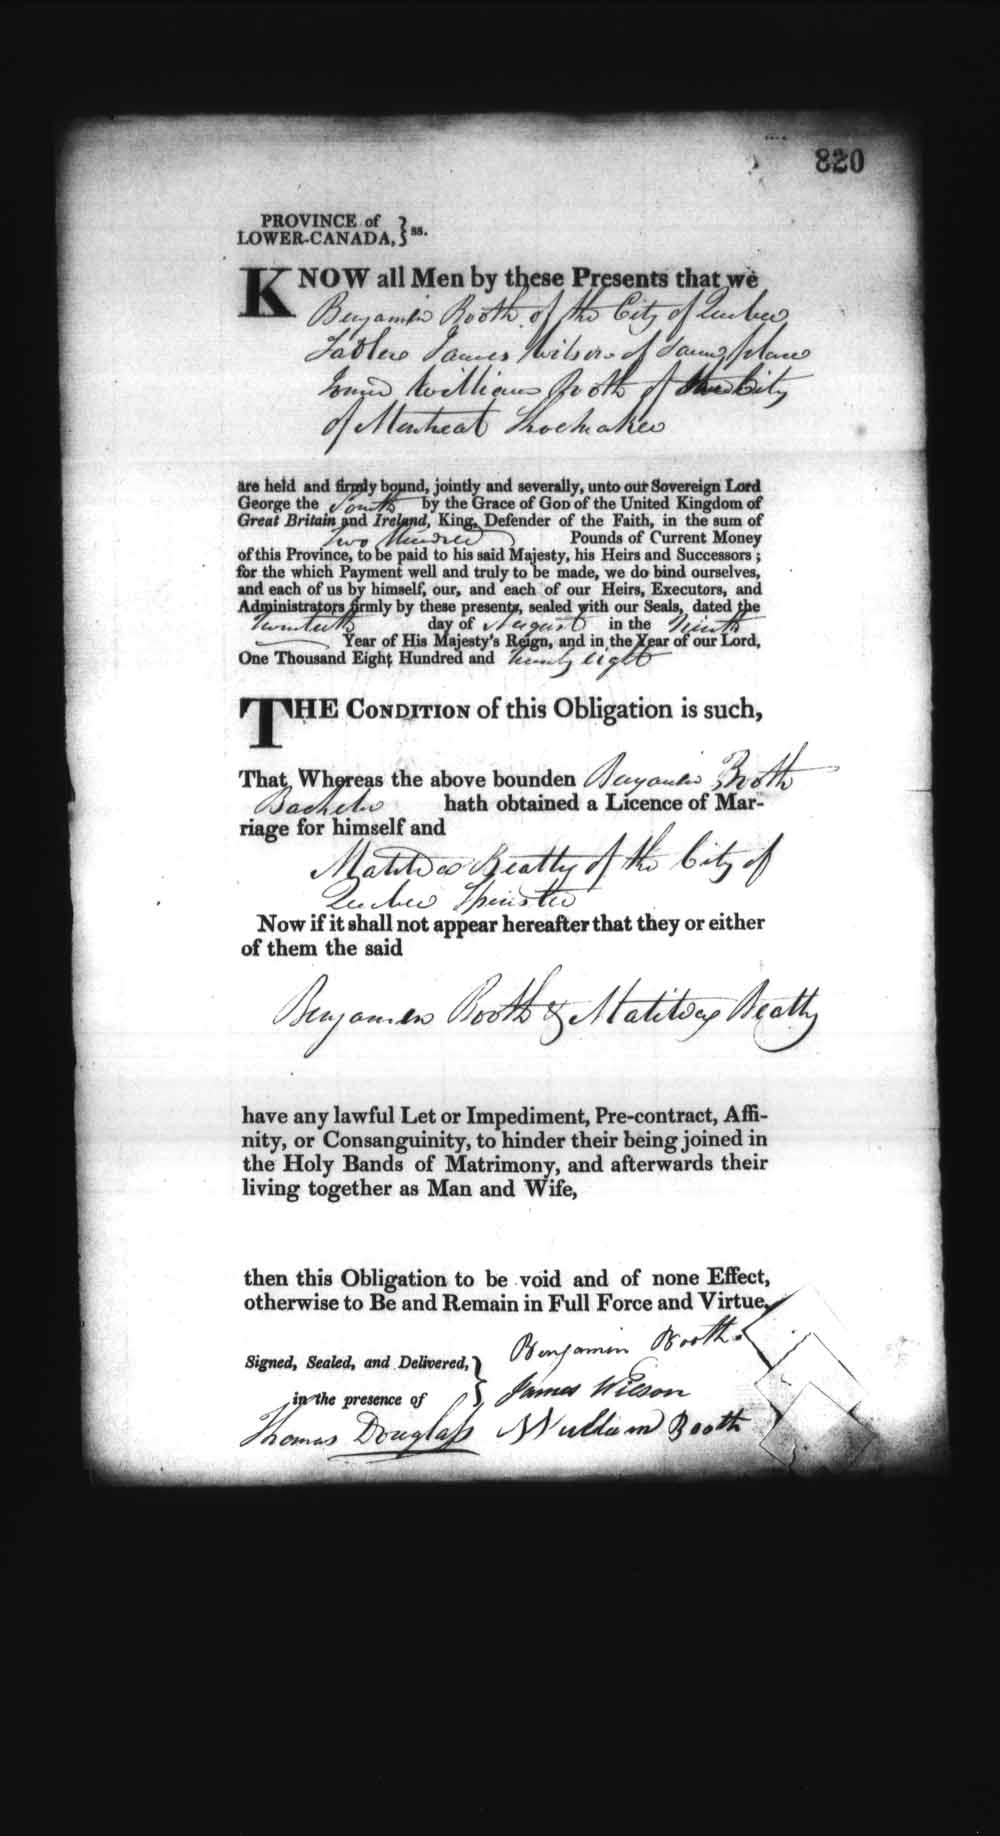 820
PROVINCE of
LOWER-CANADA, } ss.
KNOW all Men by these Presents that we
Benjamin Booth of the City of Quebec
Sadler James Wilson of same place
and William Booth of the City
of Montreal Shoemaker
are held and firmly bound, jointly and severally, unto our Sovereign Lord
George the Fourth by the Grace of GOD of the United Kingdom of
Great Britain and Ireland, King, Defender of the Faith, in the sum of
Two Hundred Pounds of Current Money
of this Province, to be paid to his said Majesty, his Heirs and Successors ;
for the which Payment well and truly to be made, we do bind ourselves,
and each of us by himself, our, and each of our Heirs, Executors, and
Administrators firmly by these presents, sealed with our Seals, dated the
Twentieth day of August in the Ninth
Year of His Majesty's Reign, and in the Year of our Lord,
One Thousand Eight Hundred and Twenty eight
THE CONDITION of this Obligation is such,
That Whereas the above bounden Benjamin Booth
Bachelor hath obtained a Licence of Mar-
riage for himself and
Matilda Beatty of the City of
Quebec Spinster
Now if it shall not appear hereafter that they or either
of them the said
Benjamin Booth & Matilda Beatty
have any lawful Let or Impediment, Pre-contract, Affi-
nity, or Consanguinity, to hinder their being joined in
the Holy Bands of Matrimony, and afterwards their
living together as Man and Wife,
then this Obligation to be void and of none Effect,
otherwise to Be and Remain in Full Force and Virtue.
Benjamin Booth
Signed, Sealed, and Delivered, }
James Wilson
in the presence of
Thomas Douglass William Booth